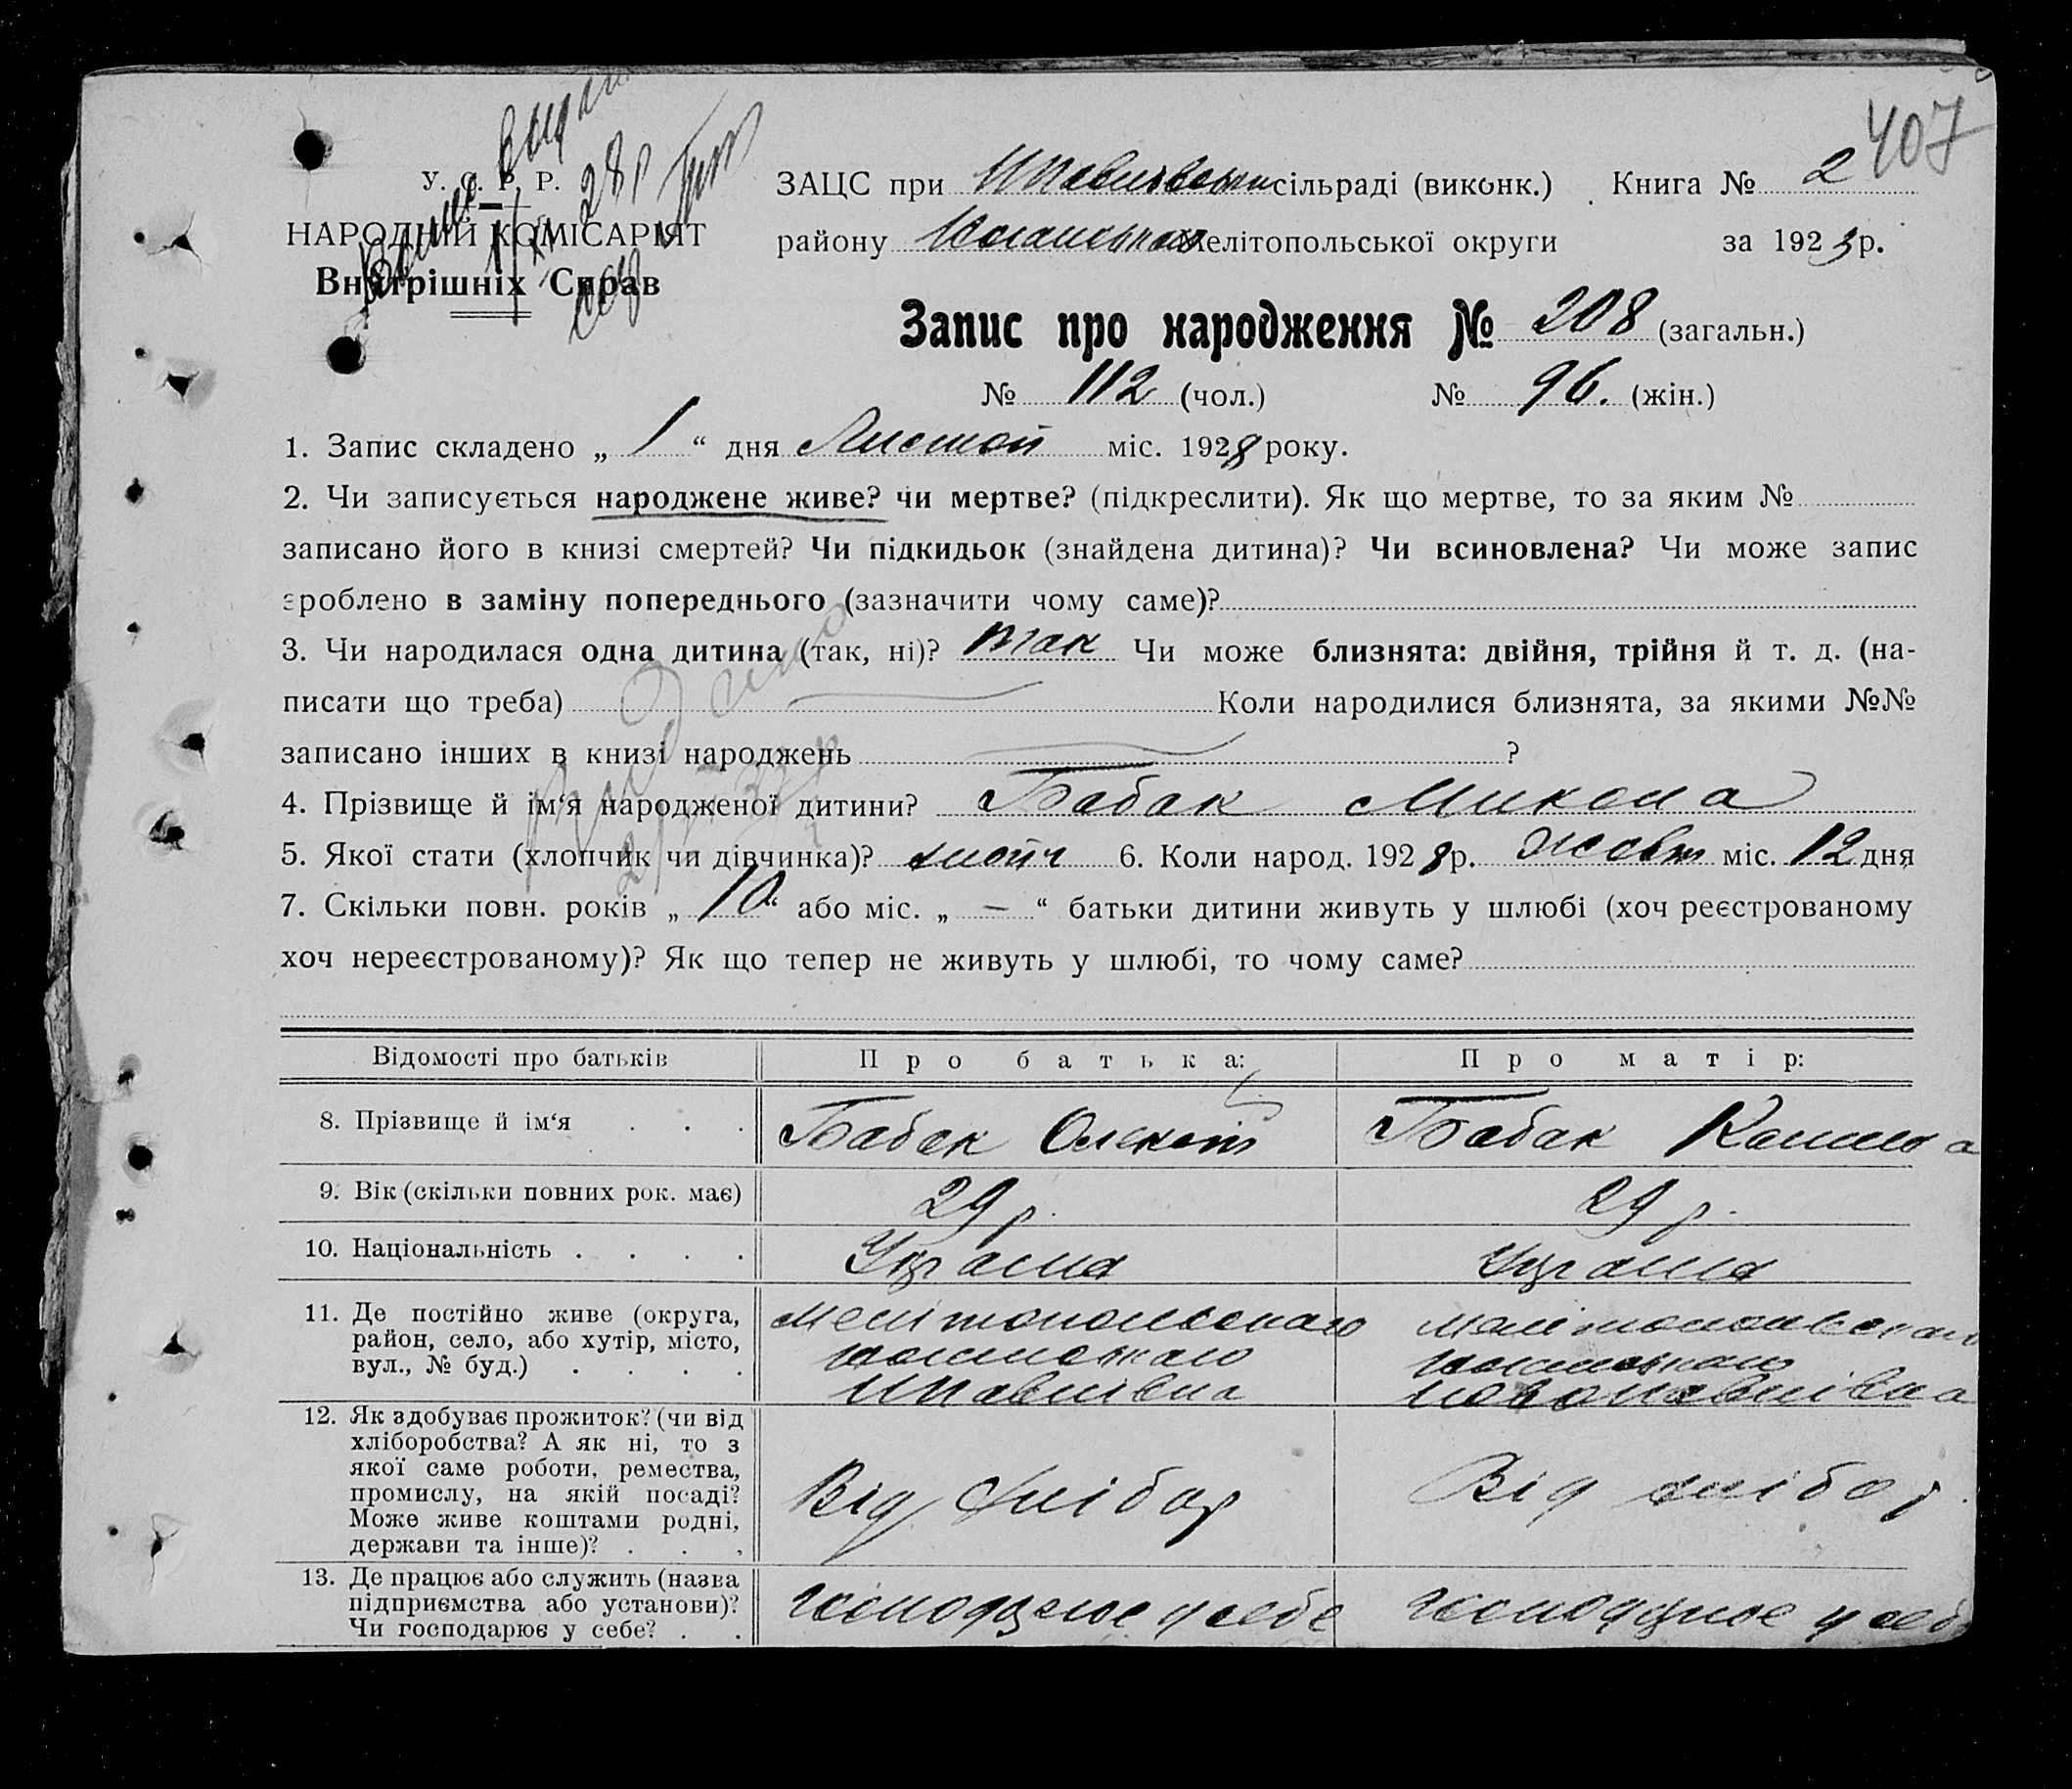 407
У. С. Р. Р.
НАРОДНИЙ КОМІСАРІЯТ
Внутрішніх Справ
28р
ЗАЦС при НПавлівськи сільраді (виконк.) Книга № 2
району Мелітопольської округи за 1923р.
Запис про народження № 208 (загальн.)
№ 112 (чол.) № 96. (жін.)
1. Запис складено „ 1 “ дня Листоп міс. 1928 року.
2. Чи записується народжене живе? чи мертве? (підкреслити). Як що мертве, то за яким №
записано його в книзі смертей? Чи підкидьок (знайдена дитина)? Чи всиновлена? Чи може запис
зроблено в заміну попереднього (зазначити чому саме)?
3. Чи народилася одна дитина (так, ні)? так Чи може близнята: двійня, трійня й т. д. (на-
писати що треба) Коли народилися близнята, за якими №№
записано інших в книзі народжень ?
4. Прізвище й ім‘я народженої дитини? Бабак Микола
5. Якої стати (хлопчик чи дівчинка)? хлопч 6. Коли народ. 1928р. Жовт міс. 12 дня
7. Скільки повн. років „ 10 “ або міс. „ — “ батьки дитини живуть у шлюбі (хоч реєстрованому
хоч нереєстрованому)? Як що тепер не живуть у шлюбі, то чому саме?
Відомості про батьків Про батька: Про матір:
8. Прізвище й ім‘я . . . Бабак Бабак
9. Вік (скільки повних рок. має) 29 р. 29 р.
10. Національність . . . . Україна Україна
11. Де постійно живе (округа, Мелітопольського Мелітопольського
район, село, або хутір, місто,
вул., № буд.) . . . . НПавлівка Новопавлівка
12. Як здобуває прожиток? (чи від
хліборобства? А як ні, то з
якої саме роботи, ремества,
промислу, на якій посаді? Від хлібор Від хлібор
Може живе коштами родні,
держави та інше)? . . .
13. Де працює або служить (назва
підприємства або установи)? господарює у себе господарює у себе
Чи господарює у себе? . .